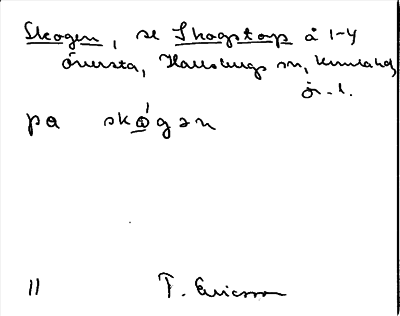 Skogen, se Skogstorp å 1-4
Örersta, Hallsbergs sn, Kumla hd,
ör. l.
pa skø̀gən
11 T. Ericsson